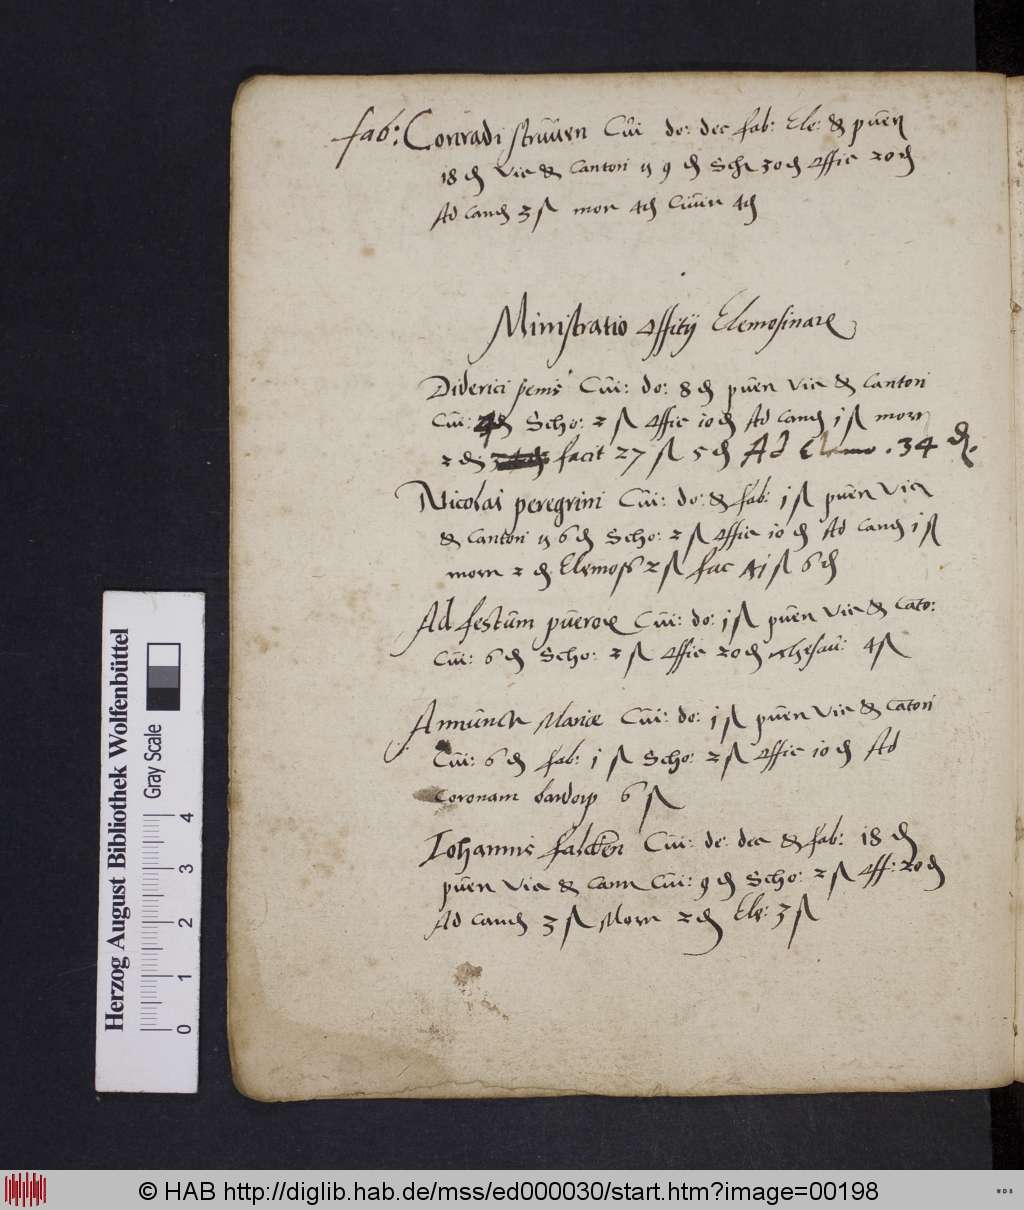 fab: Conradi struuen Cui: do: dec fab: Ele: & puen
18 ₰ Vic & Cantori 9 ₰ Sch 30 ₰ Offic 20 ₰
Ad Cand 3 ß mor 4 ₰ Cuuen 4 ₰
Ministratio Offitij Elemosinare
Diderici Cui: do: 8 ₰ puen Vic & Cantori
Cui: 4 ₰ Scho: 2 ß Offic 10 ₰ Ad Cand j ß morn
2 ₰ facit 27 ß 5 ₰ Ad Elemo . 34 ₰.
Nicolai peregrini Cui: do: & fab: j ß puen Vic
& Cantori 6 ₰ Scho: 2 ß Offic 10 ₰ Ad Cand j ß
morn 2 ₰ Elemos 2 ß fac ß 6 ₰
Ad festum pueror Cui: do: j ß puen Vic & Cato:
Cui: 6 ₰ Scho: 2 ß Offic 20 ₰ thesau: 4 ß
Annunct Mariæ Cui: do: j ß puen Vic & Catori
Cui: 6 ₰ fab: j ß Scho: 2 ß Offic 10 ₰ Ad
Coronam bardorp 6 ß
Iohannis falcken Cui: do: dec & fab: 18 ₰
puen Vic & Cann Cui: 9 ₰ Scho: 2 ß Off: 20 ₰
Ad Cand 3 ß Morn 2 ₰ Ele: 3 ß
Herzog August Bibliothek Wolfenbüttel
Gray Scale
0 1 2 3 4
© HAB http://diglib.hab.de/mss/ed000030/start.htm?image=00198